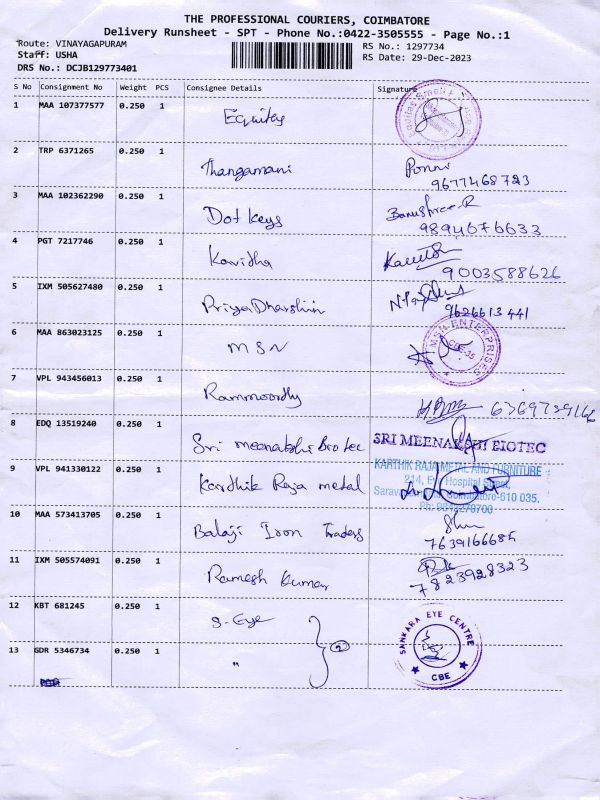 THE PROFESSIONAL COURIERS, COIMBATORE
Delivery Runsheet - SPT - Phone No.:0422-3505555 - Page No.:1
Route: VINAYAGAPURAM
RS No.: 1297734
Staff: USHA
RS Date: 29-Dec-2023
DRS No.: DCJB129773401
S No Consignment No Weight PCS Consignee Details Signature
1 MAA 107377577 0.250 1 Equitas
2 TRP 6371265 0.250 1 Thangamani Ponni
9677468723
3 MAA 102362290 0.250 1 Dot keys Banushree.R
9894676633
4 PGT 7217746 0.250 1 Kavidha
9003588626
5 IXM 505627480 0.250 1 Priya Dharshin
9626613441
6 MAA 863023125 0.250 1 MSN MSN ENTERPRISES
CBE-35
7 VPL 943456013 0.250 1 Rammoordy
8 EDQ 13519240 0.250 1 Sri meenatshi Bio tec SRI MEENAKSHI BIOTEC
9 VPL 941330122 0.250 1 Kardhik Raja metal KARTHIK RAJA METAL AND FURNITURE
214, Eye Hospital Street,
Coimbatore-610 035.
10 MAA 573413705 0.250 1 Balaji Iron Traders
7639166685
11 IXM 505574091 0.250 1 Ramesh Kumar
7823928323
12 KBT 681245 0.250 1 S-Eye SANKARA EYE CENTRE
CBE
13 GDR 5346734 0.250 1 " 2